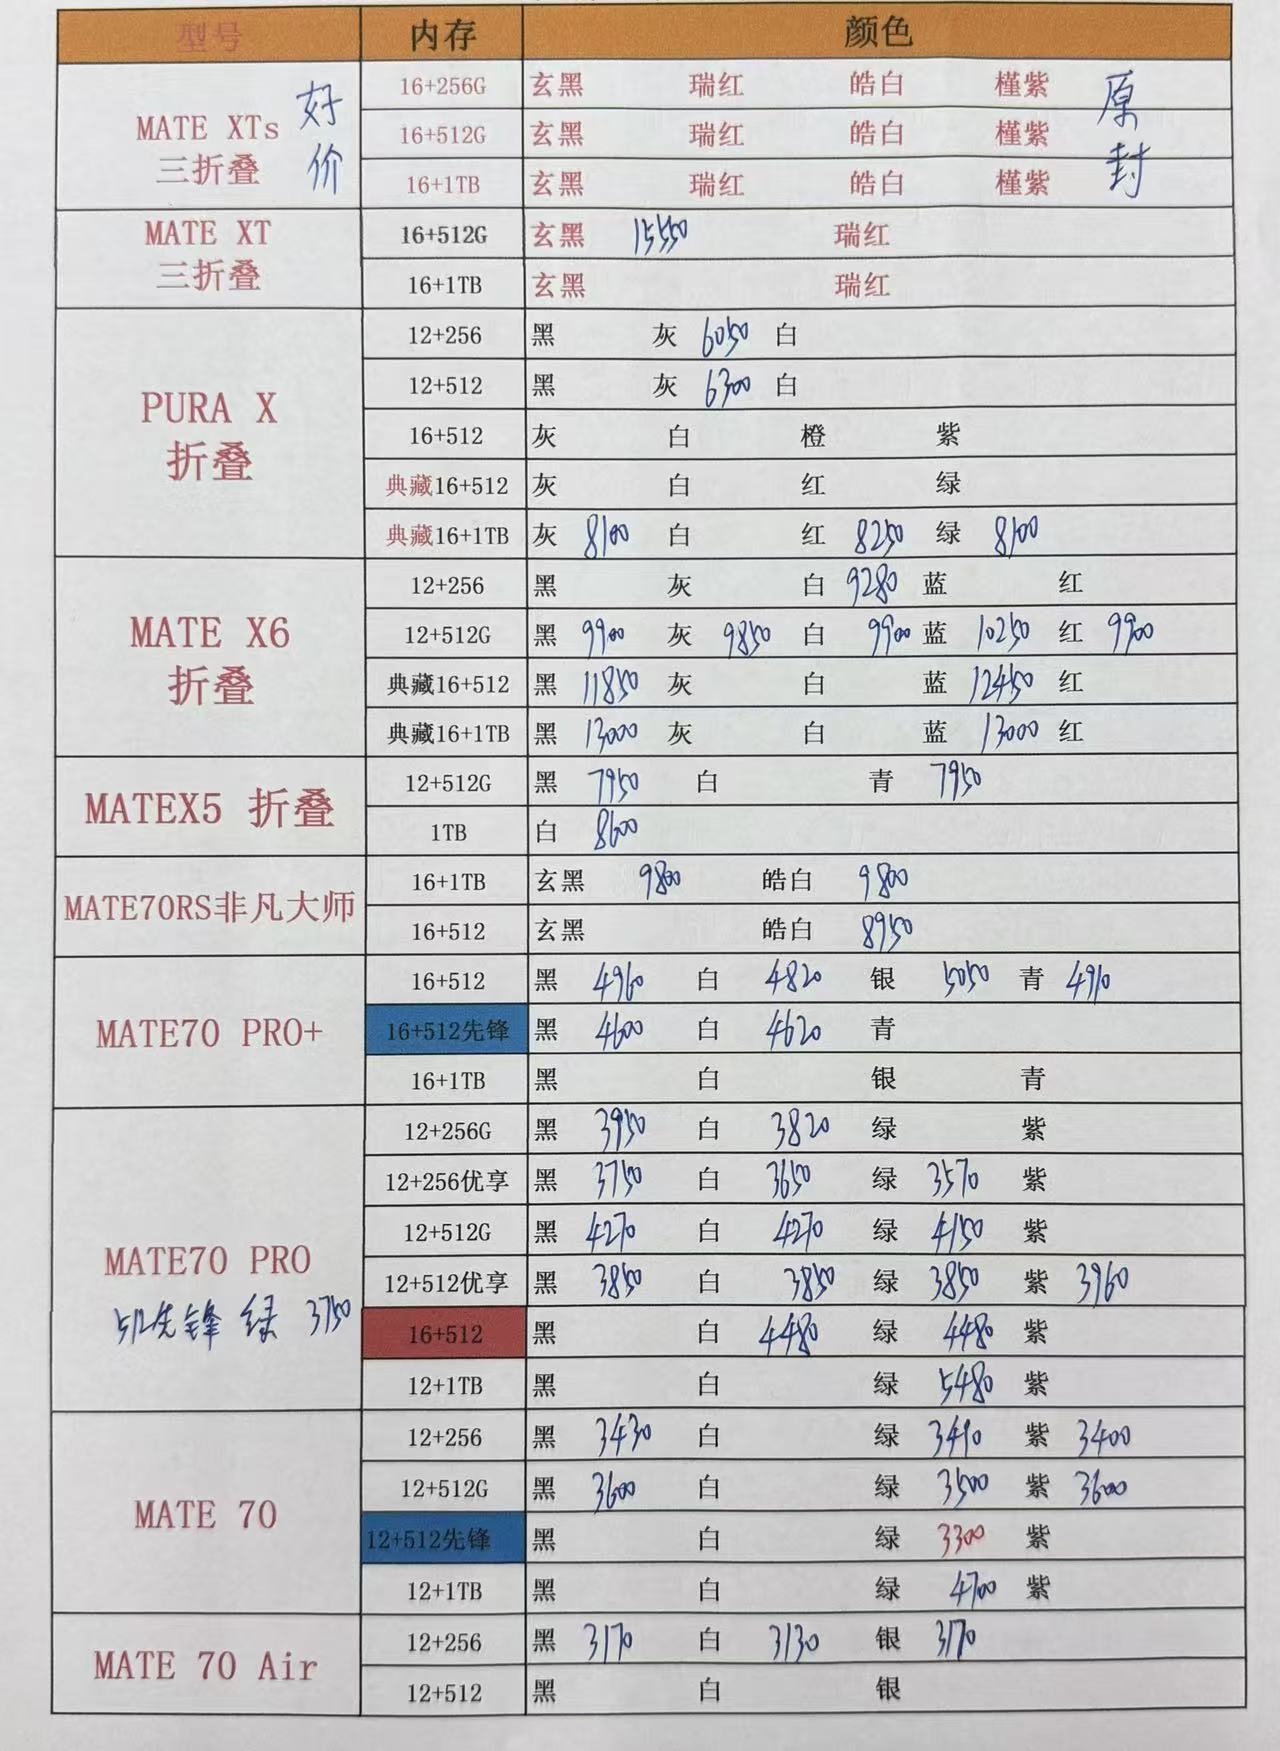 型号 内存 颜色
MATE XTs 三折叠 好价 原封
16+256G 玄黑 瑞红 皓白 槿紫
16+512G 玄黑 瑞红 皓白 槿紫
16+1TB 玄黑 瑞红 皓白 槿紫
MATE XT 三折叠
16+512G 玄黑 15550 瑞红
16+1TB 玄黑 瑞红
PURA X 折叠
12+256 黑 灰 6050 白
12+512 黑 灰 6300 白
16+512 灰 白 橙 紫
典藏16+512 灰 白 红 绿
典藏16+1TB 灰 8100 白 红 8250 绿 8100
MATE X6 折叠
12+256 黑 灰 白 9280 蓝 红
12+512G 黑 9900 灰 9850 白 9900 蓝 10250 红 9900
典藏16+512 黑 11850 灰 白 蓝 12450 红
典藏16+1TB 黑 13000 灰 白 蓝 13000 红
MATEX5 折叠
12+512G 黑 7950 白 青 7950
1TB 白 8600
MATE70RS非凡大师
16+1TB 玄黑 9800 皓白 9800
16+512 玄黑 皓白 8950
MATE70 PRO+
16+512 黑 4960 白 4820 银 5050 青 4910
16+512先锋 黑 4600 白 4620 青
16+1TB 黑 白 银 青
MATE70 PRO
512先锋 绿 3750
12+256G 黑 3950 白 3820 绿 紫
12+256优享 黑 3750 白 3650 绿 3570 紫
12+512G 黑 4270 白 4270 绿 4150 紫
12+512优享 黑 3850 白 3850 绿 3850 紫 3960
16+512 黑 白 4480 绿 4480 紫
12+1TB 黑 白 绿 5480 紫
MATE 70
12+256 黑 3430 白 绿 3410 紫 3400
12+512G 黑 3600 白 绿 3500 紫 3600
12+512先锋 黑 白 绿 3300 紫
12+1TB 黑 白 绿 4700 紫
MATE 70 Air
12+256 黑 3170 白 3130 银 3170
12+512 黑 白 银